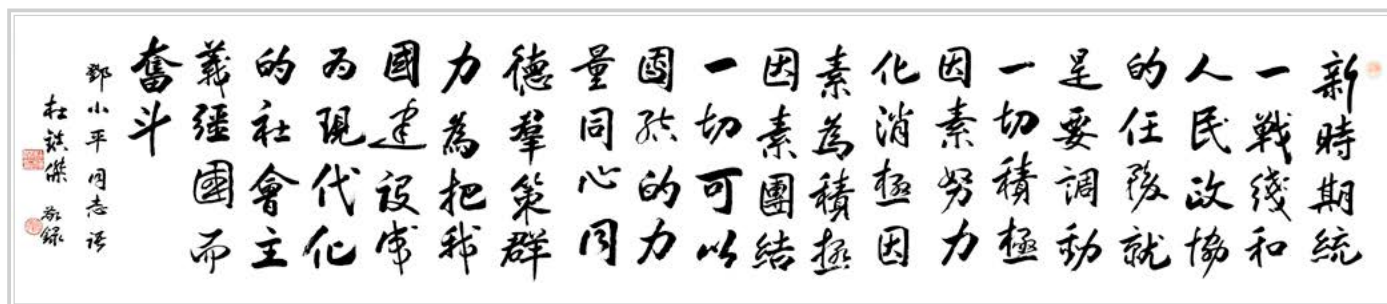 新時期統
一戰綫和
人民政協
的任務就
是要調動
一切積極
因素努力
化消極因
素為積極
因素團結
一切可以
团结的力
量同心同
德羣策群
力為把我
國建设成
为現代化
的社會主
義疆國而
奮斗
鄧小平同志语
杜鎮傑 敬録